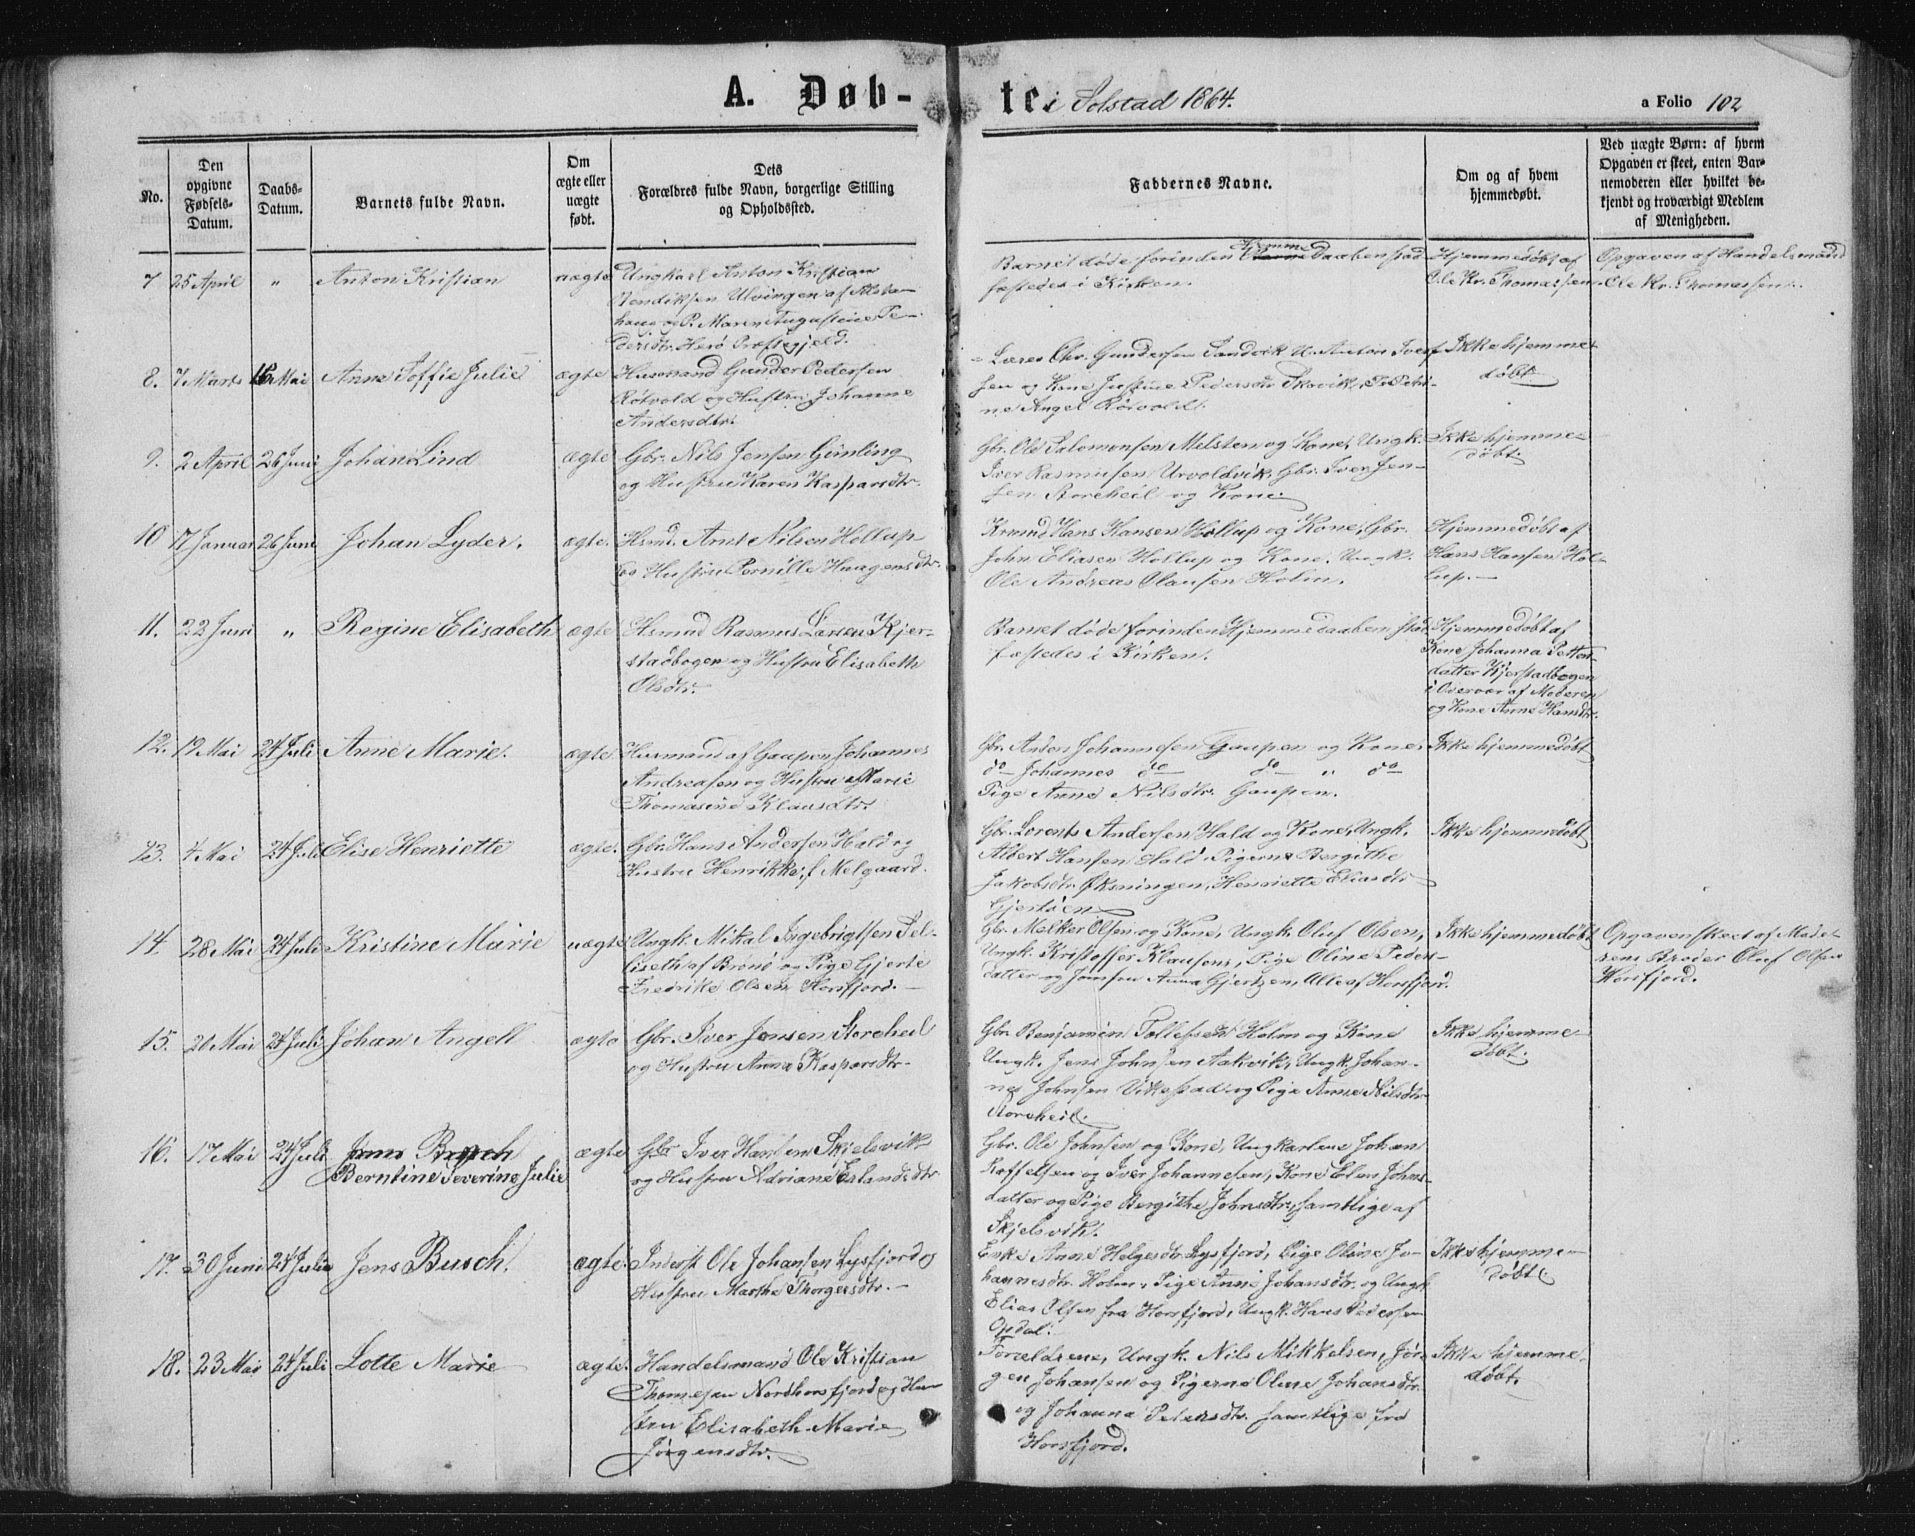 A. Døb-
te i Solstad 1864.
a Folio 102
No.
Den
opgivne
Fødsels-
Datum.
Daabs-
Datum.
Barnets fulde Navn.
Om
ægte eller
uægte
født.
Dets
Forældres fulde Navn, borgerlige Stilling
og Opholdssted.
Faddernes Navne.
Om og af hvem
hjemmedøbt.
Ved uægte Børn: af hvem
Opgaven er skeet, enten Bar-
nemoderen eller hvilket be-
kjendt og troværdigt Medlem
af Menigheden.
7 25 April " Anton Kristian uægte
Ungkarl Anton Kristian
Hendiksen Ulvingen af Alsta-
haug og P. Maren Augustine Pe-
dersdtr. Herö Præstegjeld.
Barnet döde forinden Hjemmedaaben stad-
fæstedes i Kirken.
Hjemmedøbt af
Ole Kr. Thomassen.
Opgaven af Handelsmand
Ole Kr. Thomassen.
8. 7 Marts 16 Mai Anne Soffie Julie ægte
Husmand Gunder Pedersen
Rörvold og Hustru Johanne
Andersdtr.
Lærer Chr. Gundersen Sandvik U. Anton Iver-
sen og Kone Justine Pedersdtr Skovik, P. Petri-
ne Angel Rörvold.
Ikke hjemme-
døbt.
9. 2 April 26 Juni Johan Lind ægte
Gbr. Nils Jensen Gimling
og Hustru Karen Kaspersdtr.
Gbr. Ole Salomonsen Melsten og Kone, Ungk.
Iver Rasmusen Urvoldvik, Gbr. Iver Jen-
sen Storeheil og Kone.
Ikke hjemme-
døbt.
10 17 Januar 26 Juni Johan Lyder. ægte.
Hsmd. Arnt Nilsen Hollup
og Hustru Pernille Haagensdtr.
Krmnd Hans Hansen Hollup og Kone, Gbr.
John Eliasen Hollup og Kone, Ungk.
Ole Andreas Olausen Holm.
Hjemmedøbt af
Hans Hansen Hol-
lup.
11. 22 Juni " Regine Elisabeth ægte
Hsmnd Rasmus Larsen Kjer-
stadbogen og Hustru Elisabeth
Olsdtr.
Barnet döde forinden Hjemmedaaben stad-
fæstedes i Kirken.
Hjemmedøbt af
Kone Johanna Petters-
datter Kjerstadbogen
i Overvær af Moderen
og Kone Anne Hansdtr.
12. 19 Mai 24 Juli Anne Marie. ægte.
Husmand af Gaupen Johannes
Andreasen og Hustru Marie
Thomasine Klausdtr.
Gbr. Anton Johannesen Gaupen og Kone
do Johannes do do " do
Pige Anne Nilsdtr. Gaupen.
Ikke hjemmedøbt
13. 4 Mai 24 Juli Elise Henriette ægte.
Gbr. Hans Andersen Hald og
Hustru Henrikke, f. Melgaard.
Gbr. Lorents Andersen Hald og Kone, Ungk.
Albert Hansen Hald, Pigerne Bergithe
Jakobsdtr Øksningen, Henriette Eliasdtr
Gjertöen
Ikke hjemmedøbt
14. 28 Mai 24 Juli Kristine Marie uægte
Ungk. Mikal Ingebrigtsen Sal-
liseth af Brönö og Pige Gjerte
Fredrike Olsen Horsfjord.
Gbr. Melker Olsen og Kone, Ungk. Oluf Olsen,
Ungk. Kristoffer Klausens, Pige Oline Peders-
datter og Jomfru Anna Gjertzen, Alle af Horsfjord.
Ikke hjemmedøbt
Opgaven skeet af Mode-
rens Broder Oluf Olsen
Horsfjord.
15. 20 Mai 24 Juli Johan Angell ægte
Gbr. Iver Jensen Storeheil
og Hustru Anna Kaspersdtr.
Gbr. Benjamin Tollefsen Holm og Kone
Ungk. Jens Johnsen Aakvik, Ungk. Johan-
nes Johnsen Vikestad og Pige Anne Nilsdtr
Storeheil.
Ikke hjemme-
døbt.
16. 17 Mai 24 Juli Jens Busch
Berntine Severine Julie ægte
Gbr Iver Hansen Skjelsvik
og Hustru Adriane Erlandsdtr
Gbr. Ole Johnsen og Kone, Ungkarlene Johan
Toffelsen og Iver Johannesen, Kone Elen Johns-
datter og Pige Bergithe Johnsdtr, samtlige af
Skjelsvik.
17. 30 Juni 24 Juli Jens Busch. ægte.
Inderst Ole Johansen Lysfjord og
Hustru Marthe Thorgersdtr.
Enke Anne Helgesdtr Lysfjord, Pige Oline Jo-
hannesdtr. Holm, Pige Anne Johansdtr. og Ungk.
Elias Olsen fra Horsfjord, Ungk. Hans Pedersen
Opdal.
Ikke hjemme-
døbt
18. 23 Mai 24 Juli Lotte Marie ægte.
Handelsmand Ole Kristian
Thomesen Nordhorsfjord og Hu-
stru Elisabeth Marie
Jörgensdtr.
Forældrene, Ungk. Nils Mikkelsen, Jör-
gen Johansen og Pigerne Oline Johansdtr.
og Johanna Petersdtr. samtlige fra
Horsfjord.
Ikke hjemme-
døbt.